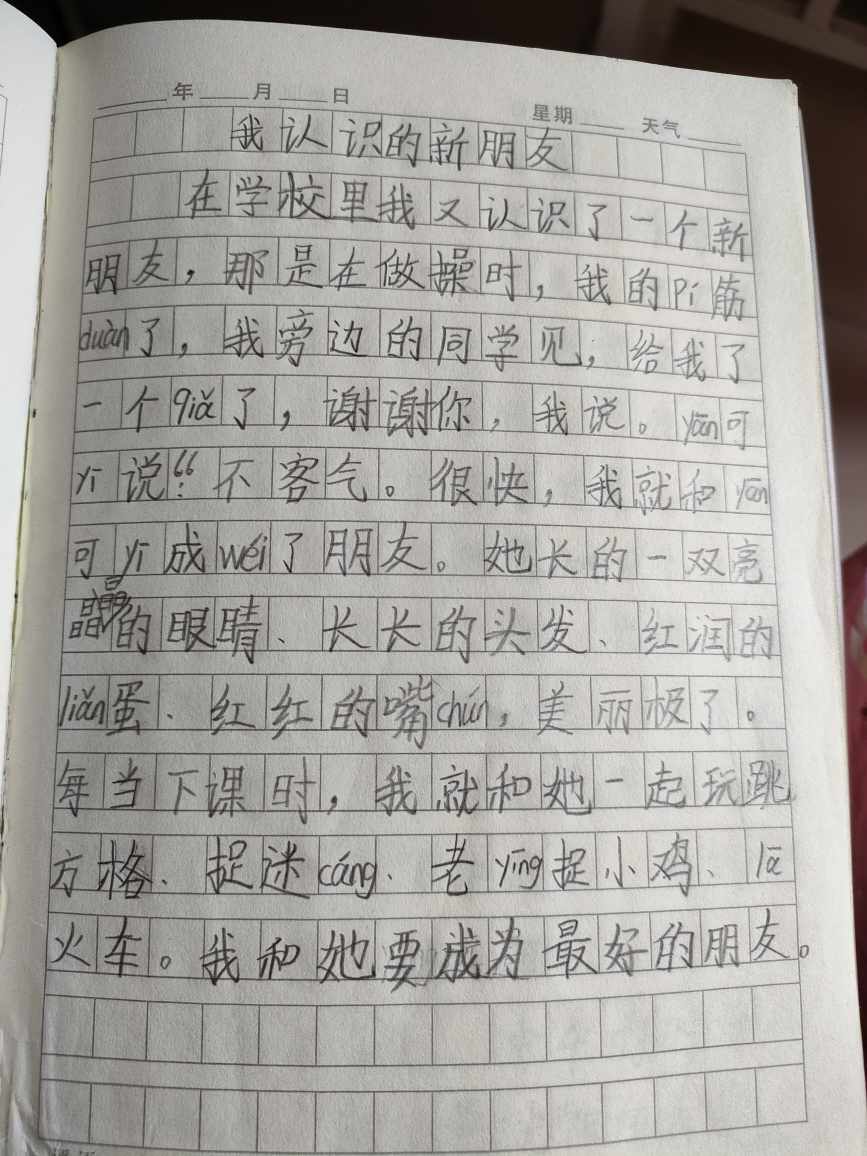 年 月 日 星期 天气
我认识的新朋友
在学校里我又认识了一个新
朋友，那是在做操时，我的pí筋
duàn了，我旁边的同学见，给我了
一个qiǎ了，谢谢你，我说。yān可
yī说：“不客气。很快，我就和yān
可yī成wéi了朋友。她长的一双亮
晶晶的眼睛、长长的头发、红润的
liǎn蛋、红红的嘴chún，美丽极了。
每当下课时，我就和她一起玩跳
方格、捉迷cáng、老yīng捉小鸡、lā
火车。我和她要成为最好的朋友。